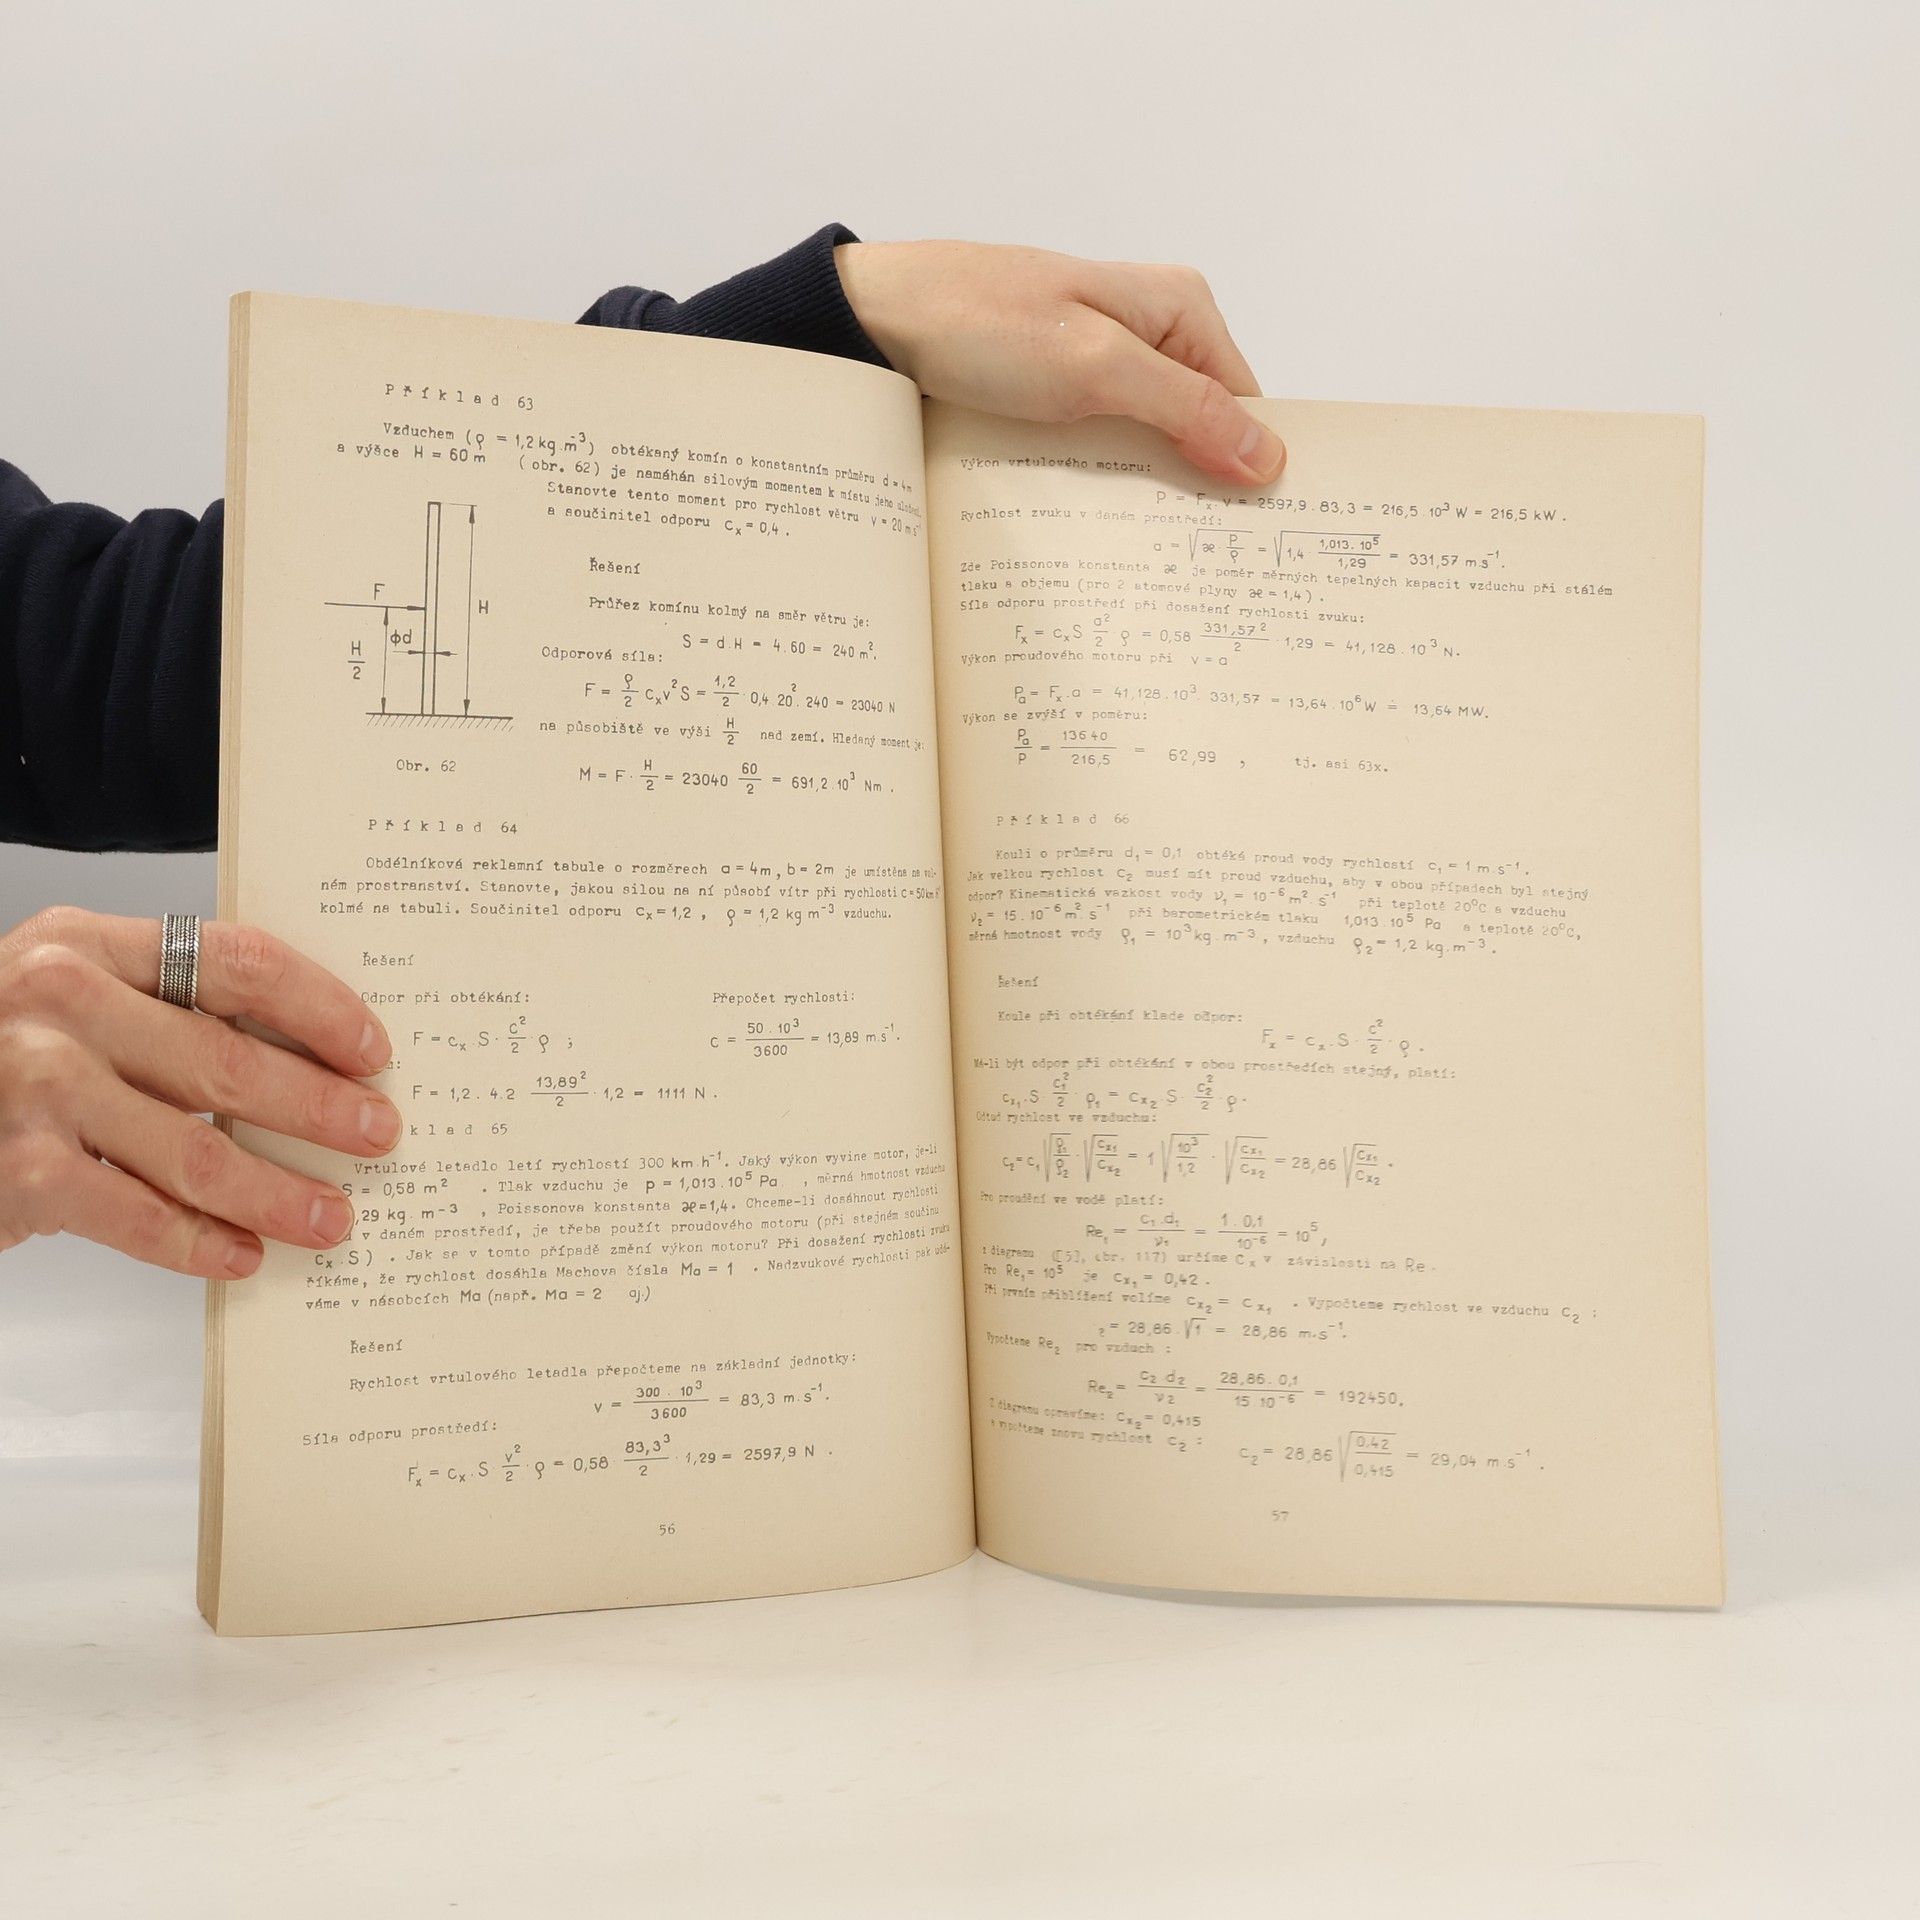 Příklad 63
Vzduchem (ρ = 1,2 kg.m⁻³) obtékaný komín o konstantním průměru d = 4m
a výšce H = 60 m (obr. 62) je namáhán silovým momentem k místu jeho uložení.
Stanovte tento moment pro rychlost větru v = 20 m.s⁻¹
a součinitel odporu cₓ = 0,4 .
Řešení
Průřez komínu kolmý na směr větru je:
S = d.H = 4.60 = 240 m².
Odporová síla:
F = ρ/2 cₓv²S = 1,2/2 · 0,4.20². 240 = 23040 N
na působiště ve výši H/2 nad zemí. Hledaný moment je:
M = F · H/2 = 23040 60/2 = 691,2.10³ Nm .
F
H
ϕd
H/2
Obr. 62
Příklad 64
Obdélníková reklamní tabule o rozměrech a = 4m, b = 2m je umístěna na vol-
ném prostranství. Stanovte, jakou silou na ní působí vítr při rychlosti c = 50 km h⁻¹
kolmé na tabuli. Součinitel odporu cₓ = 1,2 , ρ = 1,2 kg m⁻³ vzduchu.
Řešení
Odpor při obtékání: Přepočet rychlosti:
F = cₓ.S · c²/2 · ρ ; c = 50 . 10³/3600 = 13,89 m.s⁻¹.
F = 1,2 . 4.2 13,89²/2 · 1,2 = 1111 N .
klad 65
Vrtulové letadlo letí rychlostí 300 km h⁻¹. Jaký výkon vyvine motor, je-li
S = 0,58 m² . Tlak vzduchu je p = 1,013.10⁵ Pa , měrná hmotnost vzduchu
,29 kg. m⁻³ , Poissonova konstanta æ=1,4. Chceme-li dosáhnout rychlosti
v daném prostředí, je třeba použít proudového motoru (při stejném součinu
cₓ.S) . Jak se v tomto případě změní výkon motoru? Při dosažení rychlosti zvuku
říkáme, že rychlost dosáhla Machova čísla Ma = 1 . Nadzvukové rychlosti pak udá-
váme v násobcích Ma (např. Ma = 2 aj.)
Řešení
Rychlost vrtulového letadla přepočteme na základní jednotky:
v = 300 . 10³/3600 = 83,3 m.s⁻¹.
Síla odporu prostředí:
Fₓ = cₓ.S v²/2 · ρ = 0,58 · 83,3³/2 · 1,29 = 2597,9 N .
56
Výkon vrtulového motoru:
P = Fₓ.v = 2597,9 . 83,3 = 216,5 .10³ W = 216,5 kW .
Rychlost zvuku v daném prostředí:
a = √(æ · p/ρ) = √(1,4 · 1,013.10⁵/1,29) = 331,57 m.s⁻¹.
Zde Poissonova konstanta æ je poměr měrných tepelných kapacit vzduchu při stálém
tlaku a objemu (pro 2 atomové plyny æ = 1,4) .
Síla odporu prostředí při dosažení rychlosti zvuku:
Fₓ = cₓS a²/2 · ρ = 0,58 331,57²/2 · 1,29 = 41,128.10³ N.
Výkon proudového motoru při v = a
Pₐ = Fₓ.a = 41,128.10³. 331,57 = 13,64.10⁶ W ≐ 13,64 MW.
Výkon se zvýší v poměru:
Pₐ/P = 13640/216,5 = 62,99 , tj. asi 63x.
Příklad 66
Kouli o průměru d₁ = 0,1 obtéká proud vody rychlostí c₁ = 1 m.s⁻¹.
Jak velkou rychlost c₂ musí mít proud vzduchu, aby v obou případech byl stejný
odpor? Kinematická vazkost vody ν₁ = 10⁻⁶ m². s⁻¹ při teplotě 20°C a vzduchu
ν₂ = 15 . 10⁻⁶ m². s⁻¹ při barometrickém tlaku 1,013.10⁵ Pa a teplotě 20°C,
měrná hmotnost vody ρ₁ = 10³ kg.m⁻³, vzduchu ρ₂ = 1,2 kg.m⁻³.
Řešení
Koule při obtékání klade odpor:
Fₓ = cₓ.S · c²/2 · ρ .
Má-li být odpor při obtékání v obou prostředích stejný, platí:
cₓ₁.S · c₁²/2 · ρ₁ = cₓ₂ S · c₂²/2 · ρ .
Odtud rychlost ve vzduchu:
c₂ = c₁ √(ρ₁/ρ₂) · √(cₓ₁/cₓ₂) = 1 √(10³/1,2) · √(cₓ₁/cₓ₂) = 28,86 √(cₓ₁/cₓ₂) .
Pro proudění ve vodě platí:
Re₁ = c₁.d₁/ν₁ = 1 . 0,1/10⁻⁶ = 10⁵,
z diagramu ([5], obr. 117) určíme Cₓ v závislosti na Re .
Pro Re₁ = 10⁵ je cₓ₁ = 0,42 .
Při prvním přiblížení volíme cₓ₂ = cₓ₁ . Vypočteme rychlost ve vzduchu c₂ :
₂ = 28,86 . √1 = 28,86 m.s⁻¹.
Vypočteme Re₂ pro vzduch :
Re₂ = c₂.d₂/ν₂ = 28,86. 0,1/15 10⁻⁶ = 192450.
Z diagramu opravíme: cₓ₂ = 0,415
a vypočteme znovu rychlost c₂ :
c₂ = 28,86 √(0,42/0,415) = 29,04 m.s⁻¹ .
57